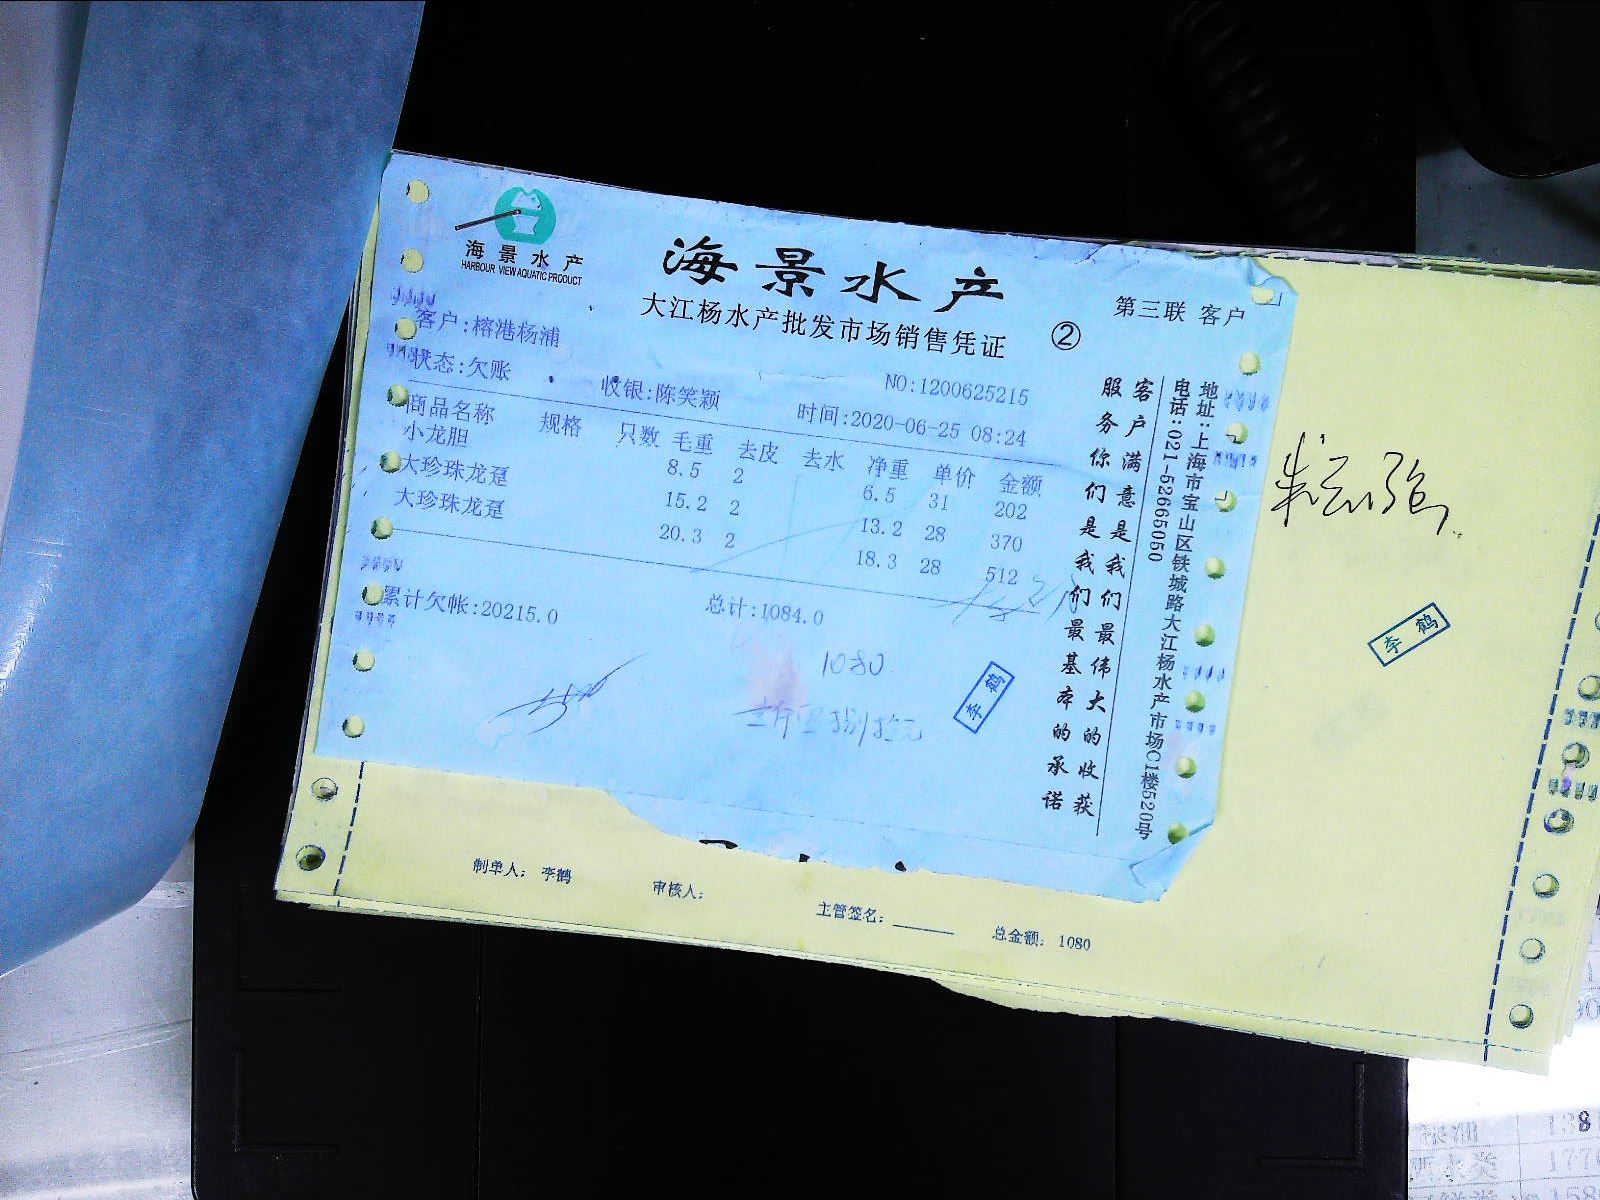 海景水产
HARBOUR VIEW AQUATIC PRODUCT
海景水产
大江杨水产批发市场销售凭证
②
第三联 客户
客户:榕港杨浦
状态:欠账
收银:陈笑颖
NO:1200625215
时间:2020-06-25 08:24
商品名称 规格 只数 毛重 去皮 去水 净重 单价 金额
小龙胆 8.5 2 6.5 31 202
大珍珠龙趸 15.2 2 13.2 28 370
大珍珠龙趸 20.3 2 18.3 28 512
累计欠帐:20215.0
总计:1084.0
1080
李鹤
客户满意是我们最伟大的收获
服务你们是我们最基本的承诺
地址:上海市宝山区铁城路大江杨水产市场C1楼520号
电话:021-52665050
李鹤
制单人: 李鹤
审核人:
主管签名:
总金额: 1080